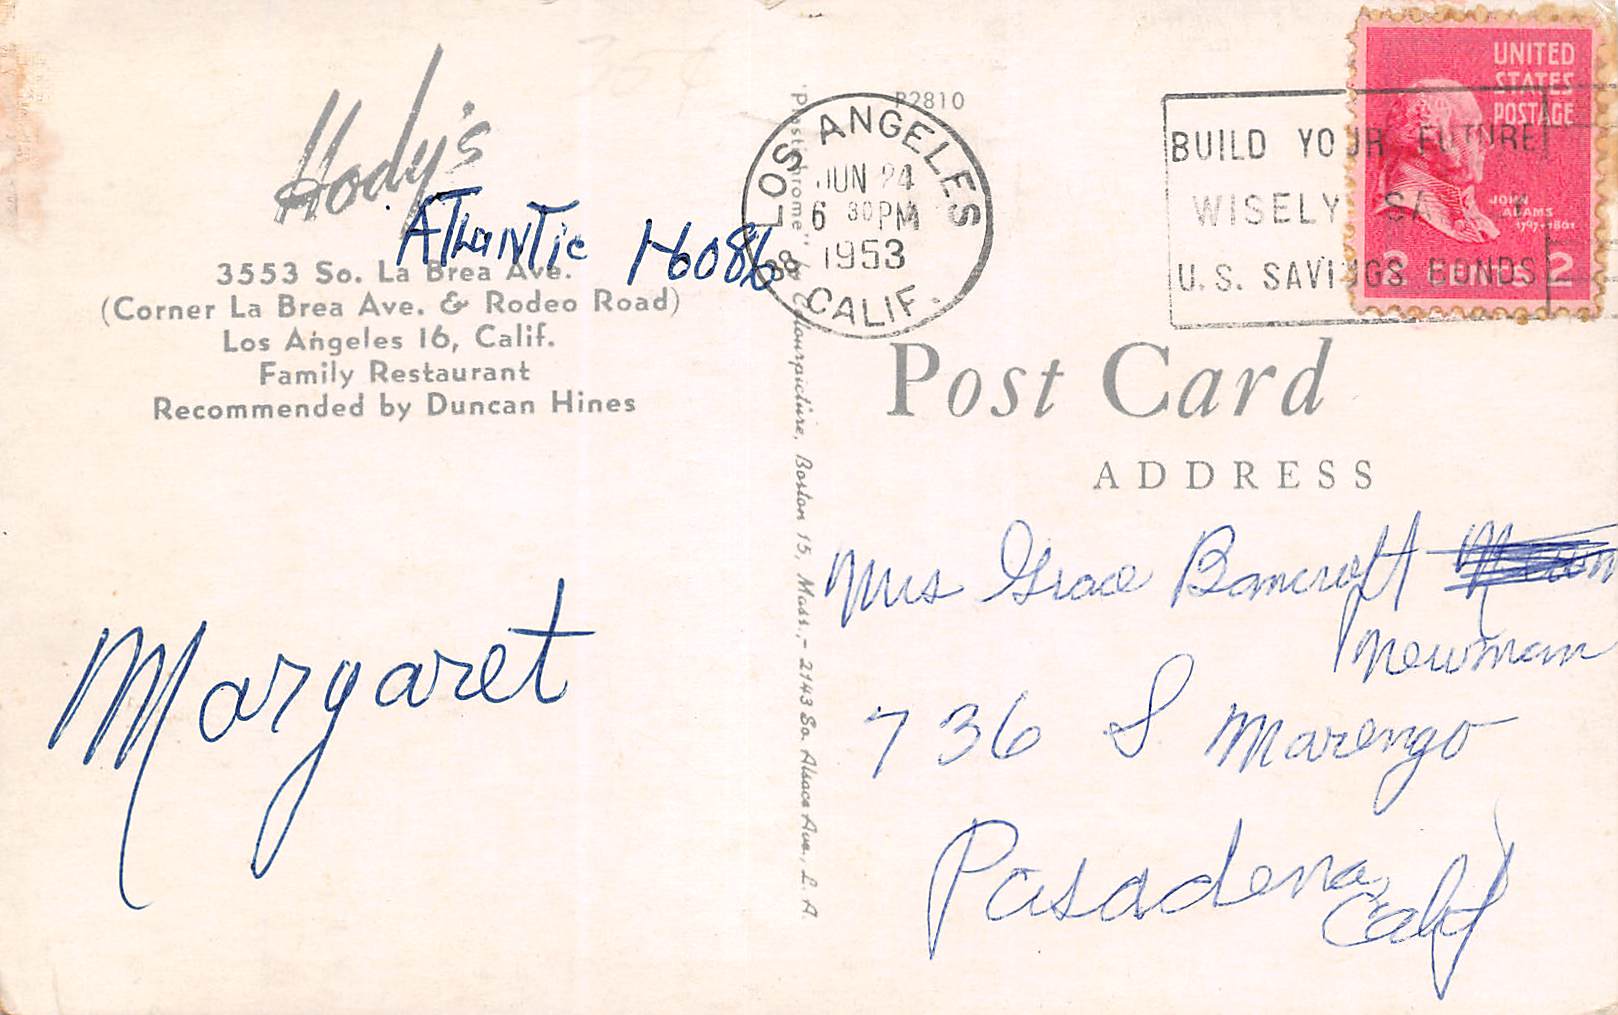 35¢
Hody's
Atlantic 16086
3553 So. La Brea Ave.
(Corner La Brea Ave. & Rodeo Road)
Los Angeles 16, Calif.
Family Restaurant
Recommended by Duncan Hines
Margaret
"Plastichrome" by Colourpicture, Boston 15, Mass., - 2143 So. Alsace Ave., L. A.
P2810
LOS ANGELES
JUN 24
6 30 PM
1953
CALIF.
BUILD YOUR FUTURE
WISELY SA
U.S. SAVINGS BONDS
UNITED
STATES
POSTAGE
JOHN
ADAMS
1797-1801
2 CENTS 2
Post Card
ADDRESS
Mrs Grace Bancroft
Newman
736 S Marengo
Pasadena,
Calif